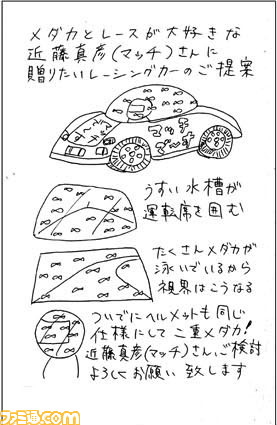 メダカとレースが大好きな
近藤真彦(マッチ)さんに
贈りたいレーシングカーのご提案
うすい水槽が
運転席を囲む
たくさんメダカが
泳いでいるから
視界はこうなる
ついでにヘルメットも同じ
仕様にして二重メダカ!
近藤真彦(マッチ)さん、ご検討
よろしくお願い致します
ファミ通.com